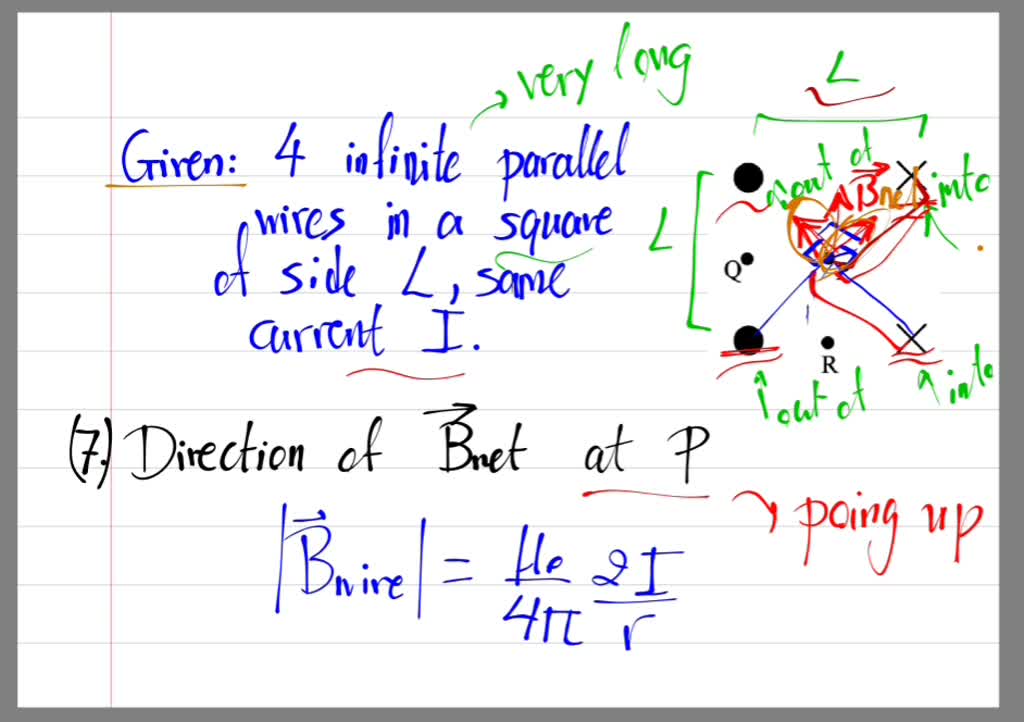 very long
L
Given: 4 infinite parallel
wires in a square
of side L, same
current I.
L
out of
Bnet
into
Q
R
out of
into
(7.) Direction of Bnet at P
poing up
|Bwire| = μo/4π 2I/r